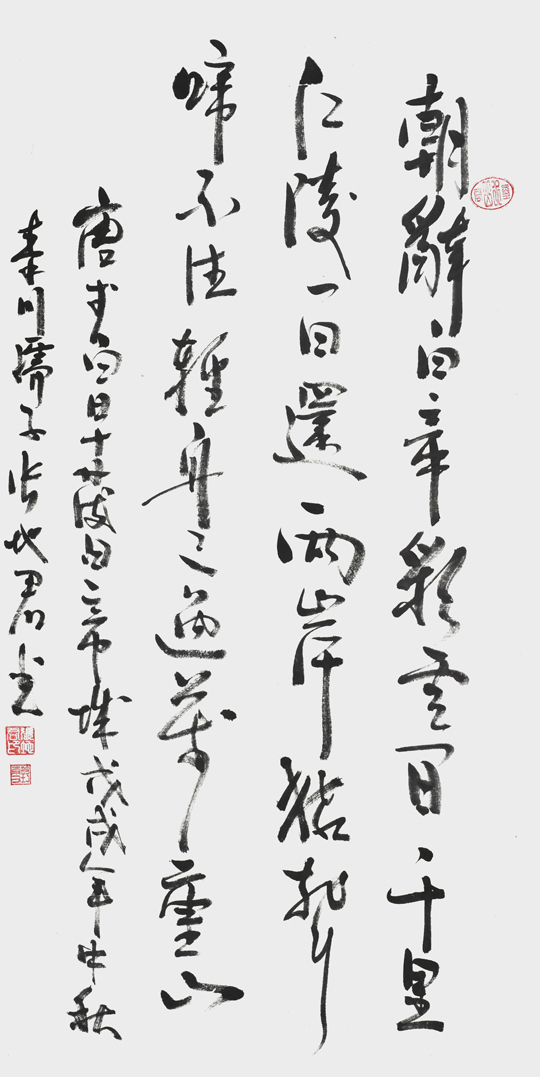 朝辭白帝彩雲間千里
江陵一日還兩岸猿聲
啼不住輕舟已過萬重山
唐李白早發白帝城戊戌年中秋
秦川儒子張地君書